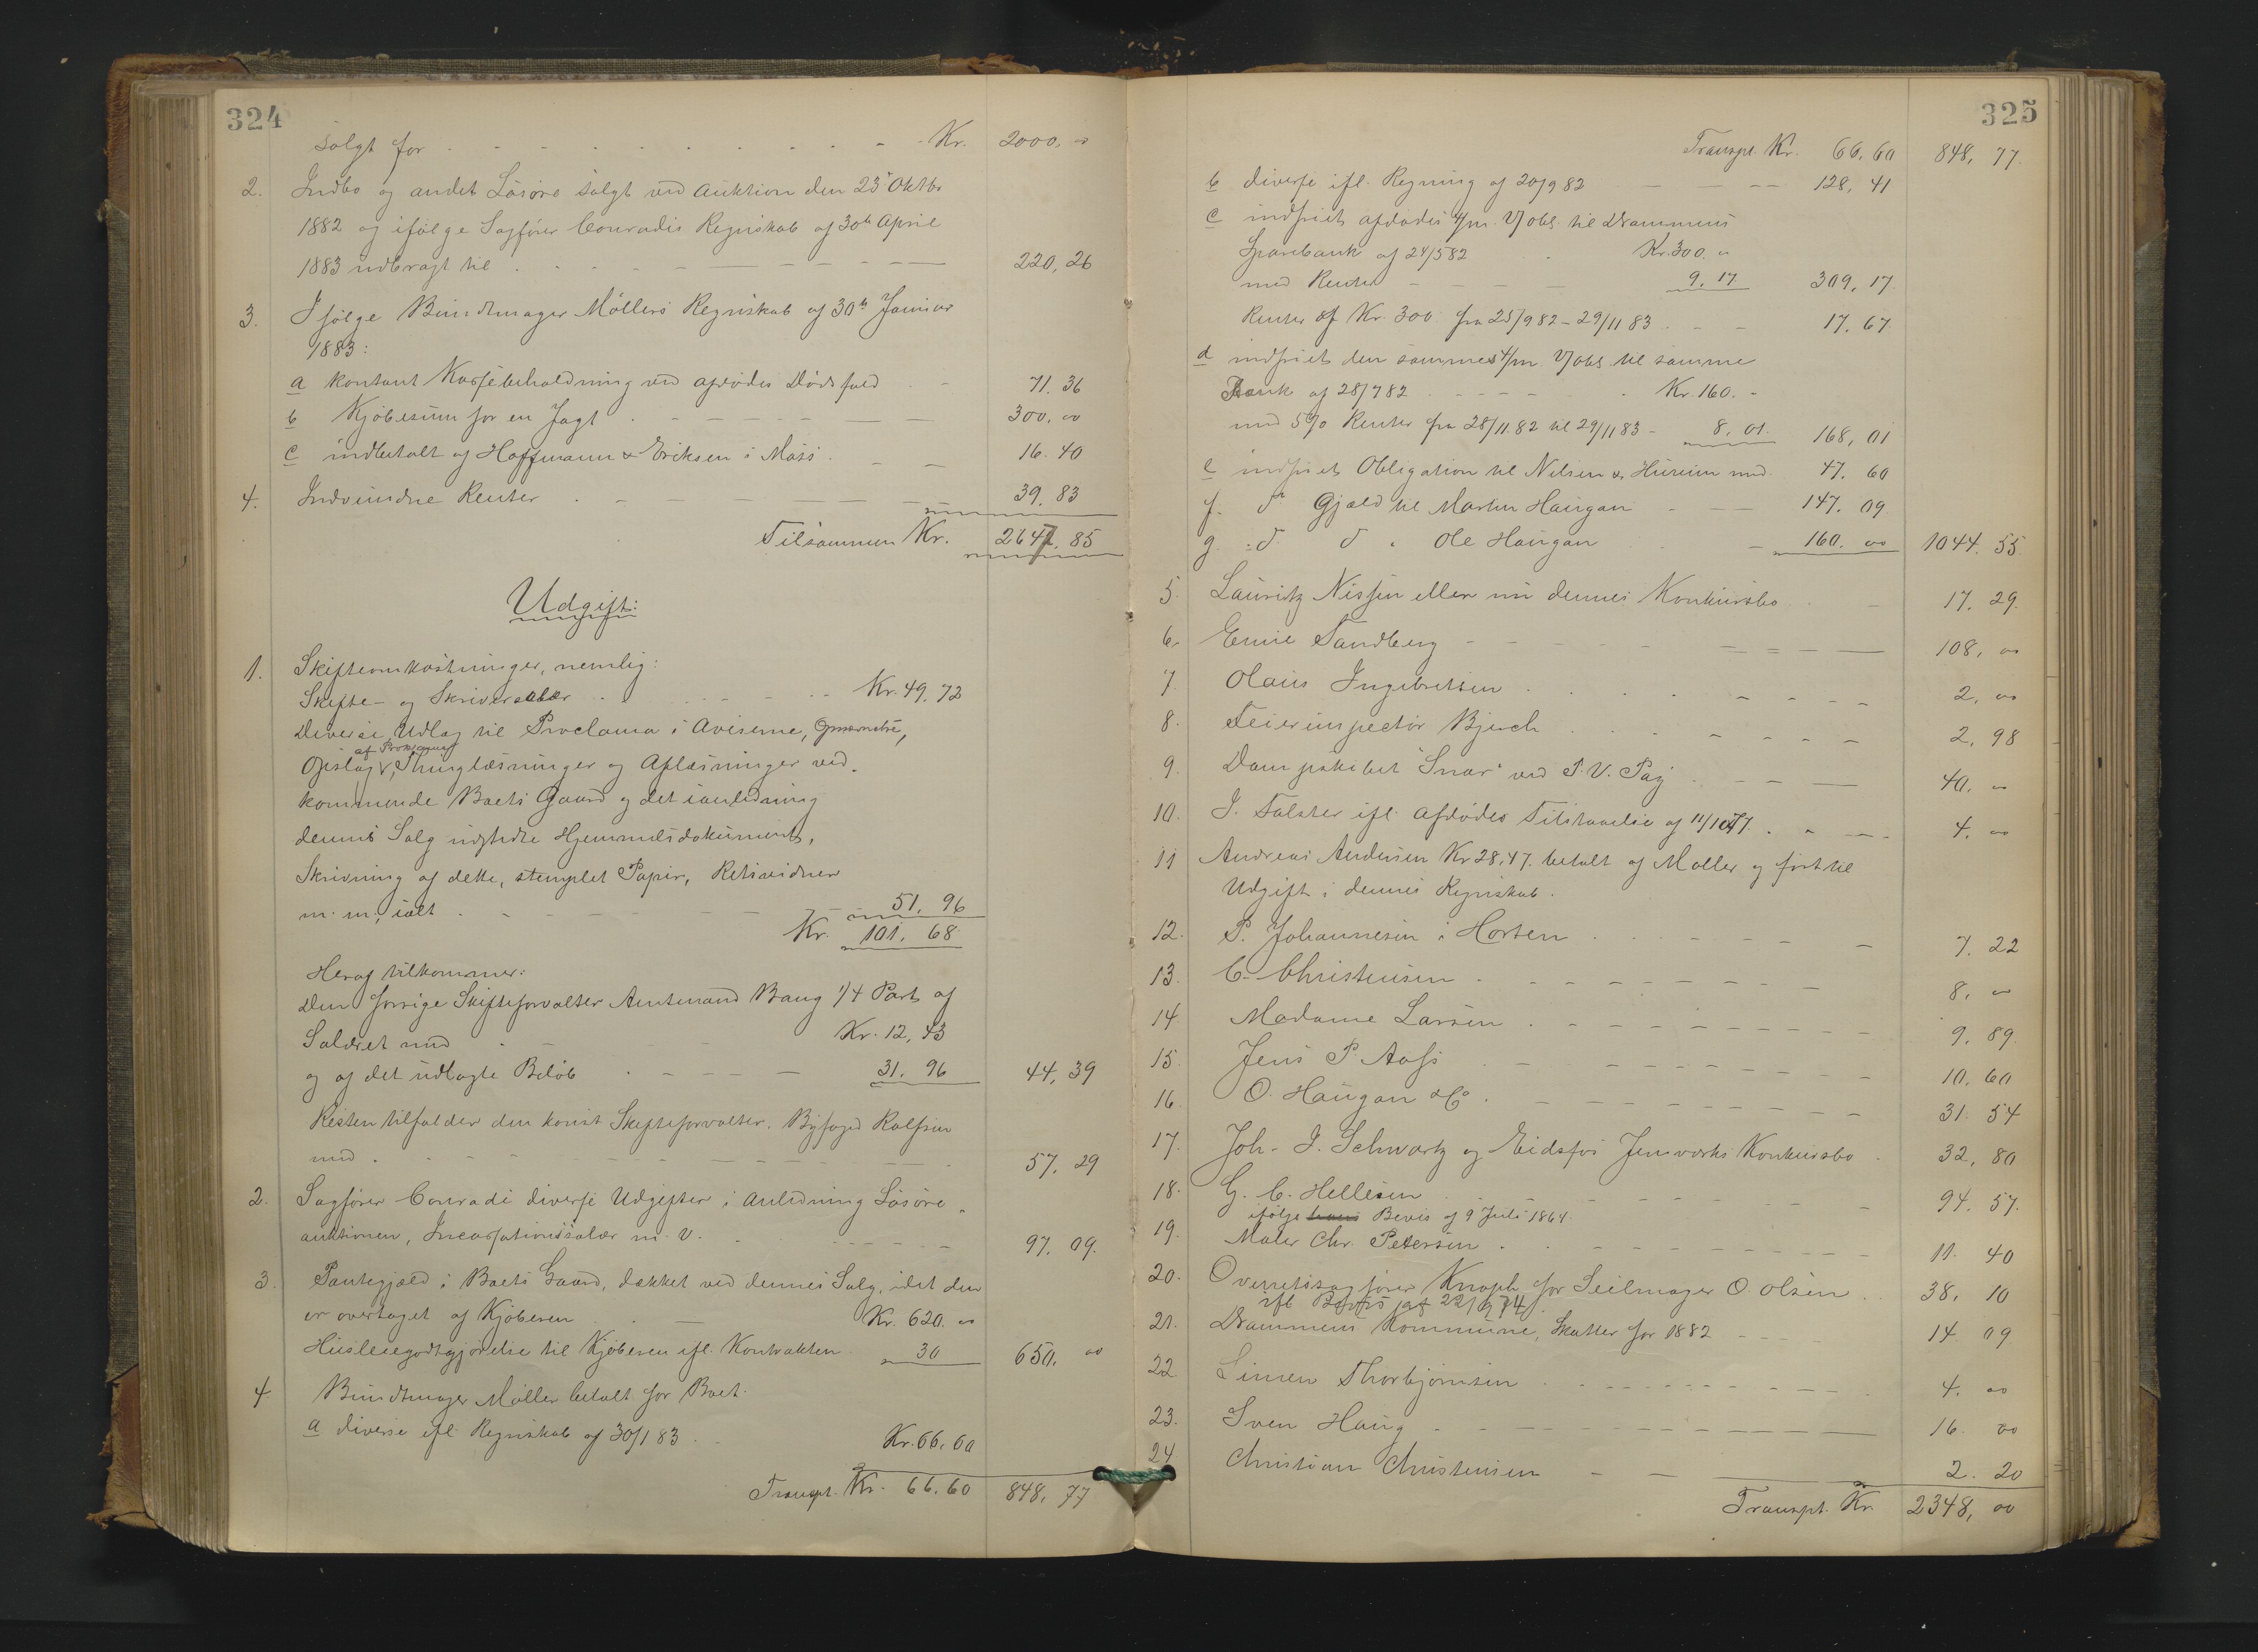 324
solgt for - - - - - - - - Kr. 2000, 00
2. Indbo og andet Løsøre solgt ved Auktion den 23de Oktbr
1882 og ifølge Sagfører Conradis Regnskab af 30te April
1883 udbragt til - - - - - 220, 26
3. Ifølge Bundtmager Møllers Regnskab af 30te Januar
1883:
a kontant Kassebeholdning ved afdødes Dødsfald - 71. 36
b Kjøbesum for en Jagt - - - - 300. 00
c indbetalt af Hoffmann & Eriksen i Moss. - - 16. 40
4. Indvundne Renter - - - - 39. 83
Tilsammen Kr. 2647. 85
Udgift:
1. Skifteomkostninger, nemlig:
Skifte- og Skriversalær - - - - Kr. 49. 72
Diverse Udlæg til Proclama i Aviserne,
af Proklama
Opslag, Thinglæsninger og Aflæsninger ved-
kommende Boets Gaard og det i anledning
dennes Salg udstedte Hjemmelsdokument,
Skrivning af dette, stemplet Papir, Retsvidner
m. m., ialt - - - - 51. 96
Kr. 101. 68
Heraf tilkommer:
Den forrige Skifteforvalter Amtmand Bang 1/4 Part af
Salæret med - - - Kr. 12, 43
og af det udlagte Beløb - - - - 31. 96 44, 39
Resten tilfalder den konst. Skifteforvalter, Byfoged Rolfsen
med - - - - - - 57. 29
2. Sagfører Conradi diverse Udgifter i Anledning Løsøre-
auktionen, Incassationssalær m. v. - - - - 97. 09.
3. Pantegjæld i Boets Gaard, dækket ved dennes Salg, idet den
er overtaget af Kjøberen - - Kr. 620. 00
Husleiegodtgjørelse til Kjøberen ifl. Kontrakten 30 650. 00
4. Bundtmager Møller betalt for Boet.
a diverse ifl. Regnskab af 30/1 83 - Kr. 66. 60
Transpt. Kr. 66. 60 848, 77
325
Transpt. Kr. 66, 60 848, 77.
b diverse ifl. Regning af 20/9 82 - - - 128, 41
c indfriet afdødes 4/m. Vobl. til Drammens
Sparebank af 24/5 82 - Kr. 300. 00
med Renter - - - - 9. 17 309. 17
Renter af Kr. 300 fra 25/9 82 - 29/11 83 - - 17. 67.
d indfriet den sammes 4/m Vobl. til samme
Bank af 28/7 82 - - - - Kr. 160. -
med 5% Renter fra 28/11 82 til 29/11 83 - 8. 01. 168, 01
e indfriet Obligation til Nelsen & med 47. 60
f. do Gjæld til Martin Haugan - - - 147. 09
g. do do " Ole Haugan - 160. 00 1044. 55
5. Lauritz Nissen eller nu dennes Konkursbo - 17. 29.
6. Emil Sandberg - - - - - - 108, 00
7. Olaus Ingebretsen - - - - - 2, 00
8. Feierinspectør Bjerch - - - - 2, 98
9. Dampskibet "Snar" ved P. V. Paj - - - 40. 00
10. J. Falster ifl. Afdødes Tilstaaelse af 11/10 77. - - 4. 00
11 Andreas Andersen Kr 28.47. betalt af Møller og ført til
Udgift i dennes Regnskab.
12. P. Johannesen i Horten - - - - 7. 22
13. C. Christensen - - - - - 8, 00
14 Madame Larsen - - - - - 9. 89.
15. Jens P. Aass - - - - - 10. 60
16. O. Haugan & Co. - - - - - 31. 54
17. Joh. J. Schwartz og Eidsfos Jernværks Konkursbo - 32, 80
18. G. C. Hellesen - - - - - 94. 57.
ifølge Bevis af 9 Juli 1864.
19. Maler Chr. Petersen - - - - - 11. 40
20. Overretssagfører Knoph for Seilmager O. Olsen - 38, 10
ifl Bevis af 22/9 74
21. Drammens Kommune, Skatter for 1882 - - - 14 09
22 Simen Thorbjørnsen - - - - - 4. 00
23. Sven Haug - - - - - 16. 00
24 Christian Christensen - - - 2. 20
Transpt. Kr. 2348, 00